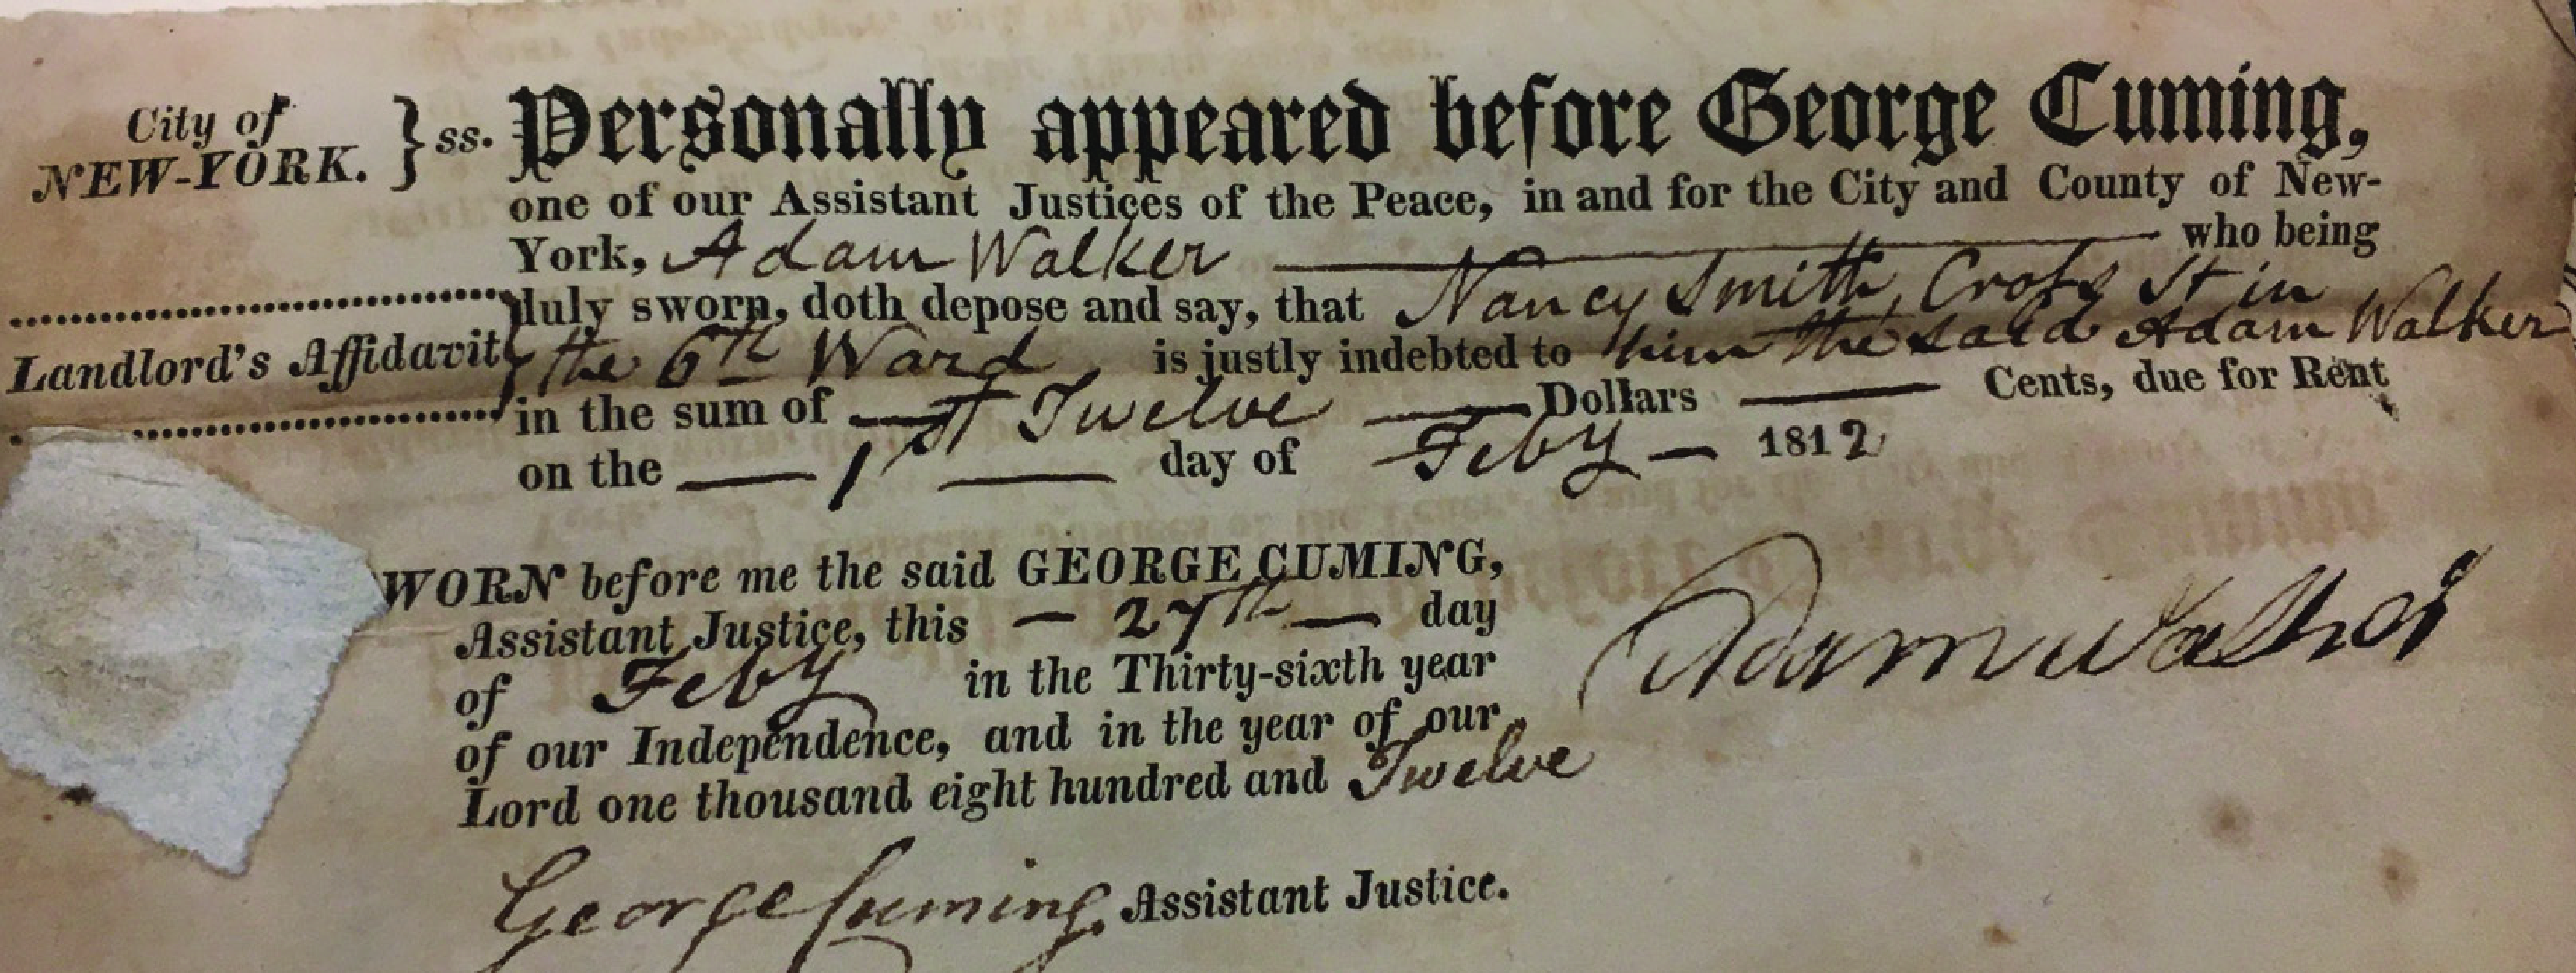 City of
NEW-YORK. } ss.
Personally appeared before George Cuming,
one of our Assistant Justices of the Peace, in and for the City and County of New-
York, Adam Walker who being
duly sworn, doth depose and say, that Nancy Smith, Cross St in
Landlord's Affidavit
the 6th Ward is justly indebted to him the said Adam Walker
in the sum of Twelve Dollars Cents, due for Rent
on the 1st day of Feby 1812
WORN before me the said GEORGE CUMING,
Assistant Justice, this 27th day
of Feby in the Thirty-sixth year
of our Independence, and in the year of our
Lord one thousand eight hundred and Twelve
Adam Walker
George Cuming, Assistant Justice.